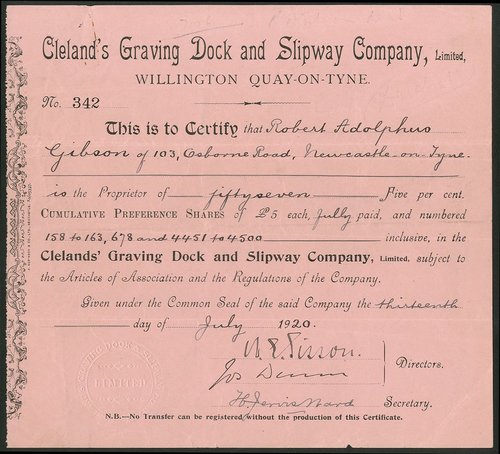 Cleland's Graving Dock and Slipway Company, Limited,
WILLINGTON QUAY-ON-TYNE.
No. 342
This is to Certify that Robert Adolphus
Gibson of 103, Osborne Road, Newcastle-on-Tyne.
is the Proprietor of fiftyseven Five per cent.
CUMULATIVE PREFERENCE SHARES of £5 each, fully paid, and numbered
158 to 163, 678 and 4451 to 4500 inclusive, in the
Clelands' Graving Dock and Slipway Company, Limited, subject to
the Articles of Association and the Regulations of the Company.
Given under the Common Seal of the said Company the thirteenth
day of July 1920.
Directors.
H. Jervis Ward Secretary.
LIMITED
N.B.—No Transfer can be registered without the production of this Certificate.